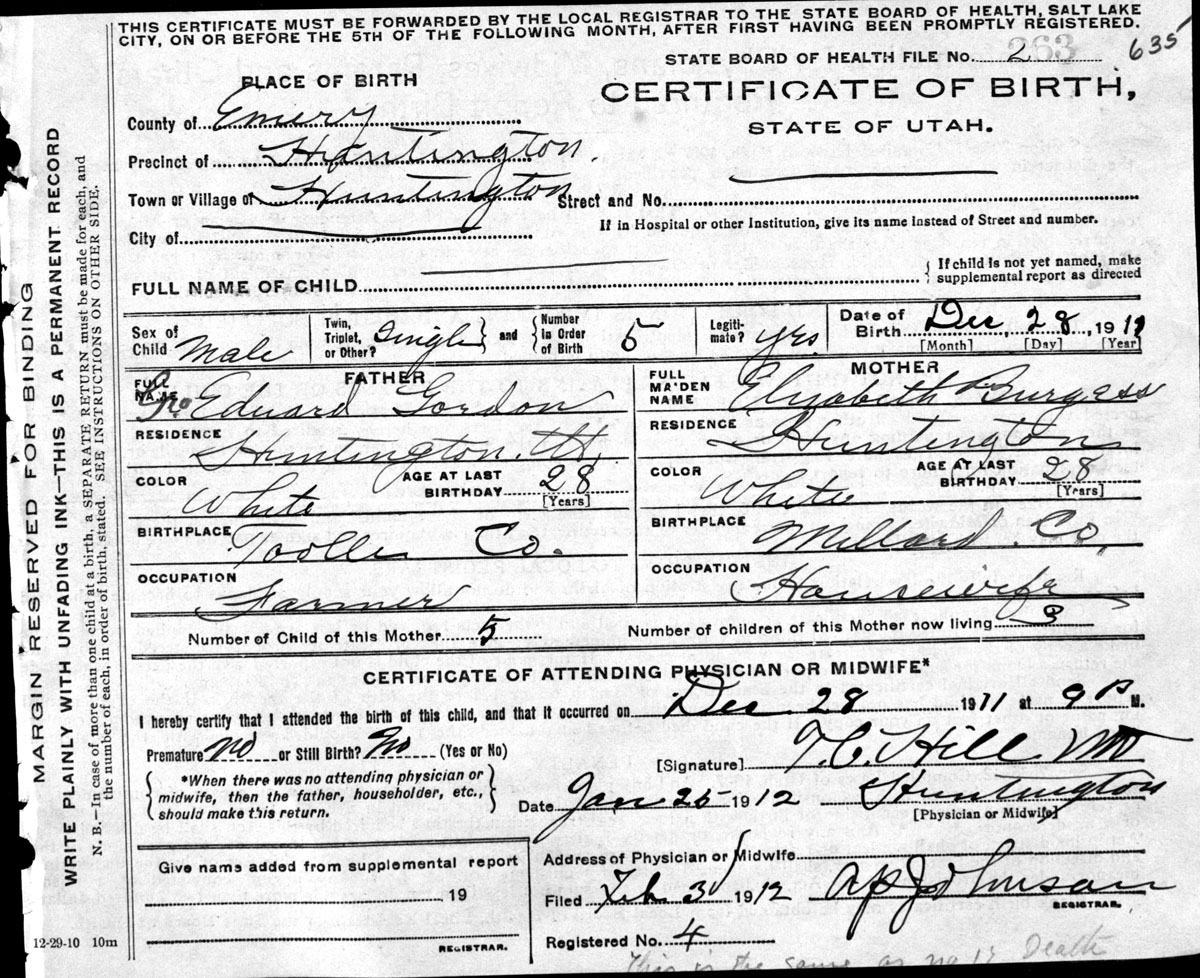 THIS CERTIFICATE MUST BE FORWARDED BY THE LOCAL REGISTRAR TO THE STATE BOARD OF HEALTH, SALT LAKE
CITY, ON OR BEFORE THE 5TH OF THE FOLLOWING MONTH, AFTER FIRST HAVING BEEN PROMPTLY REGISTERED.
263
635
STATE BOARD OF HEALTH FILE No. 2
PLACE OF BIRTH
CERTIFICATE OF BIRTH,
STATE OF UTAH.
County of Emery
Precinct of Huntington.
Town or Village of Huntington Street and No.
If in Hospital or other Institution, give its name instead of Street and number.
City of
FULL NAME OF CHILD
{ If child is not yet named, make
supplemental report as directed
Sex of Child Male
Twin, Triplet, or Other? Single } and { Number in Order of Birth 5
Legiti-mate? yes.
Date of Birth Dec 28, 1911
[Month] [Day] [Year]
FATHER
FULL NAME Geo Eduard Gordon
RESIDENCE Huntington. Ut.
COLOR White AGE AT LAST BIRTHDAY 28 [Years]
BIRTHPLACE Toolle Co.
OCCUPATION Farmer
MOTHER
FULL MAIDEN NAME Elizabeth Burgess
RESIDENCE Huntington
COLOR White AGE AT LAST BIRTHDAY 28 [Years]
BIRTHPLACE Millard. Co,
OCCUPATION Housewife
Number of Child of this Mother 5 Number of children of this Mother now living 3
CERTIFICATE OF ATTENDING PHYSICIAN OR MIDWIFE*
I hereby certify that I attended the birth of this child, and that it occurred on Dec 28 1911 at 9 P M.
Premature no or Still Birth? No (Yes or No)
{ *When there was no attending physician or
midwife, then the father, householder, etc.,
should make this return. }
[Signature] T. C. Hill MD
Date Jan 25 1912 Huntington
[Physician or Midwife]
Give name added from supplemental report
19
REGISTRAR.
Address of Physician or Midwife
Filed Feb 3 1912 A P Johnson
REGISTRAR.
Registered No. 4
This is the same as no 15 Death
12-29-10 10m
MARGIN RESERVED FOR BINDING
WRITE PLAINLY WITH UNFADING INK—THIS IS A PERMANENT RECORD
N. B.—In case of more than one child at a birth, a SEPARATE RETURN must be made for each, and
the number of each, in order of birth, stated. SEE INSTRUCTIONS ON OTHER SIDE.